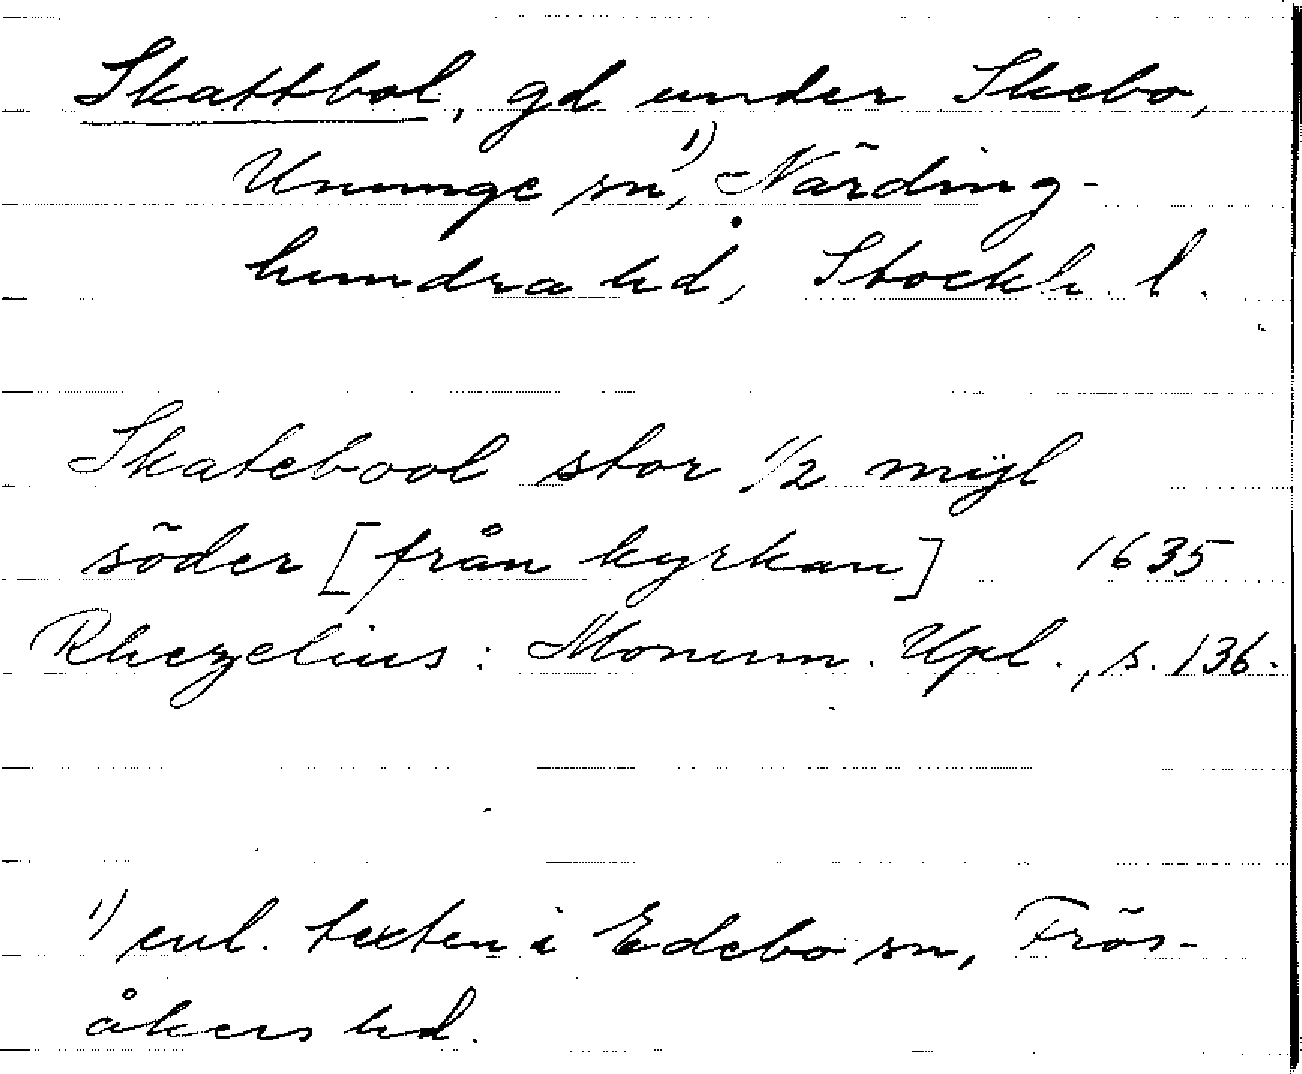 Skattbol, gd under Skebo,
Ununge sn,¹⁾ Närding-
hundra hd, Stockh. l.
Skatebool stor 1/2 mijl
söder [från kyrkan] 1635
Rhezelius: Monum. Upl., s. 136.
¹⁾ enl. texten i Edebo sn, Frös-
åkers hd.